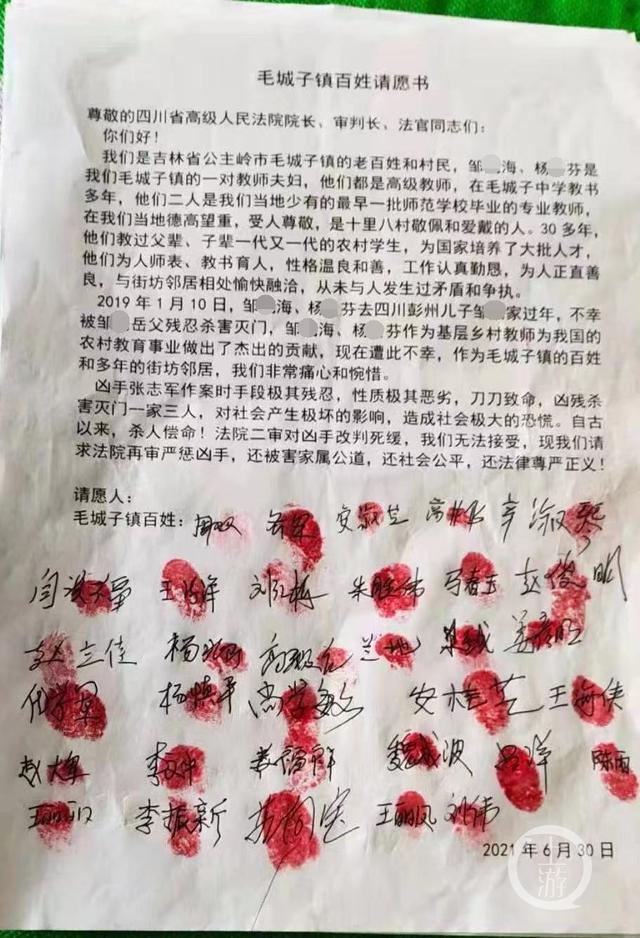 毛城子镇百姓请愿书
尊敬的四川省高级人民法院院长、审判长、法官同志们：
你们好！
我们是吉林省公主岭市毛城子镇的老百姓和村民，邹 海、杨 芬是
我们毛城子镇的一对教师夫妇，他们都是高级教师，在毛城子中学教书
多年，他们二人是我们当地少有的最早一批师范学校毕业的专业教师，
在我们当地德高望重，受人尊敬，是十里八村敬佩和爱戴的人。30 多年，
他们教过父辈、子辈一代又一代的农村学生，为国家培养了大批人才，
他们为人师表、教书育人，性格温良和善，工作认真勤恳，为人正直善
良，与街坊邻居相处愉快融洽，从未与人发生过矛盾和争执。
2019 年 1 月 10 日，邹 海、杨 芬去四川彭州儿子邹 家过年，不幸
被邹 岳父残忍杀害灭门，邹 海、杨 芬作为基层乡村教师为我国的
农村教育事业做出了杰出的贡献，现在遭此不幸，作为毛城子镇的百姓
和多年的街坊邻居，我们非常痛心和惋惜。
凶手张志军作案时手段极其残忍，性质极其恶劣，刀刀致命，凶残杀
害灭门一家三人，对社会产生极坏的影响，造成社会极大的恐慌。自古
以来，杀人偿命！法院二审对凶手改判死缓，我们无法接受，现我们请
求法院再审严惩凶手，还被害家属公道，还社会公平，还法律尊严正义！
请愿人：
毛城子镇百姓：
朱胜伟 马春玉 赵俊明
赵立佳
杨慎平 安桂芝 王海侠
陈雨
李振新 王丽凤 刘伟
2021 年 6 月 30 日
上游